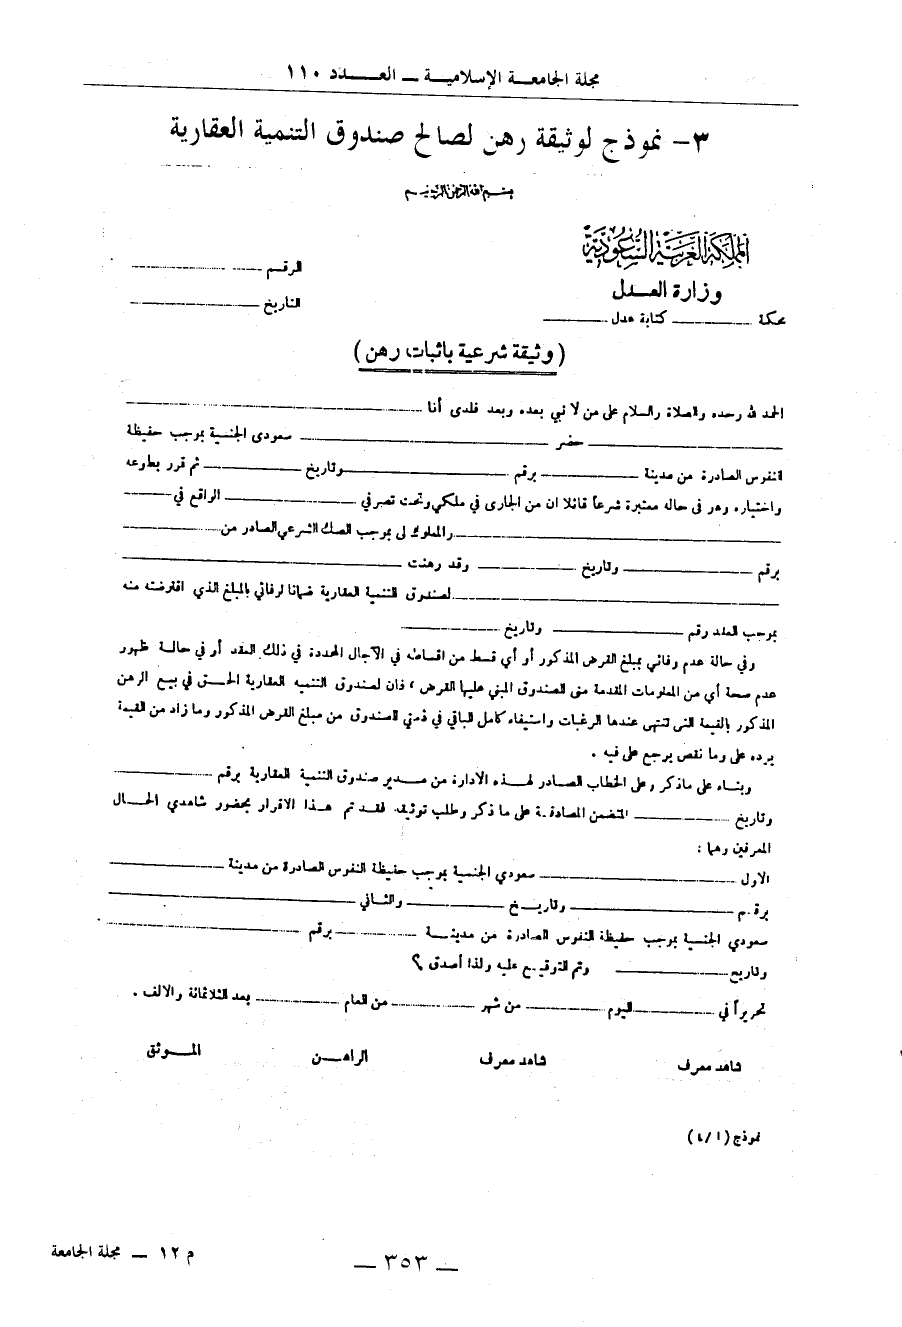 مجلة الجامعة الإسلامية ـ العدد ١١٠
٣- نموذج لوثيقة رهن لصالح صندوق التنمية العقارية
بسم الله الرحمن الرحيم
المملكة العربية السعودية
الرقم
وزارة العدل
التاريخ
محكمة كتابة عدل
( وثيقة شرعية باثبات رهن )
الحمد لله وحده والصلاة والسلام على من لا نبي بعده وبعد فلدى أنا
حضر سعودى الجنسية بموجب حفيظة
النفوس الصادرة من مدينة برقم وتاريخ ثم قرر بطوعه
واختياره وهو فى حاله معتبرة شرعاً قائلا ان من الجارى في ملكي وتحت تصرفي الواقع في
والمملوك لى بموجب الصك الشرعي الصادر من
برقم وتاريخ وقد رهنت
لصندوق التنمية العقارية ضمانا لوفائي بالمبلغ الذي اقترضته منه
بموجب العقد رقم وتاريخ
وفي حالة عدم وفائي بمبلغ القرض المذكور أو أي قسط من اقساطه في الآجال المحددة في ذلك العقد أو في حالة ظهور
عدم صحة أي من المعلومات المقدمة منى للصندوق المبني عليها القرض ، فان لصندوق التنميه العقارية الحق في بيع الرهن
المذكور بالقيمة التى تنتهى عندها الرغبات واستيفاء كامل الباقي في ذمتي للصندوق من مبلغ القرض المذكور وما زاد من القيمة
يرده على وما نقص يرجع على فيه .
وبناء على ماذكر وعلى الخطاب الصادر لهذه الادارة من مدير صندوق التنمية العقارية برقم
وتاريخ المتضمن المصادقة على ما ذكر وطلب توثيقه فقد تم هذا الاقرار بحضور شاهدي الحال
المعرفين وهما :
الاول سعودي الجنسية بموجب حفيظة النفوس الصادرة من مدينة
برقم وتاريخ والثاني
سعودي الجنسية بموجب حفيظة النفوس الصادرة من مدينة برقم
وتاريخ وتم التوقيع عليه ولذا أصدق ؟
تحريراً في اليوم من شهر من العام بعد الثلاثمائة والالف .
شاهد معرف شاهد معرف الراهن الموثق
نموذج (٤/١)
م ١٢ ـ مجلة الجامعة
ـ ٣٥٣ ـ